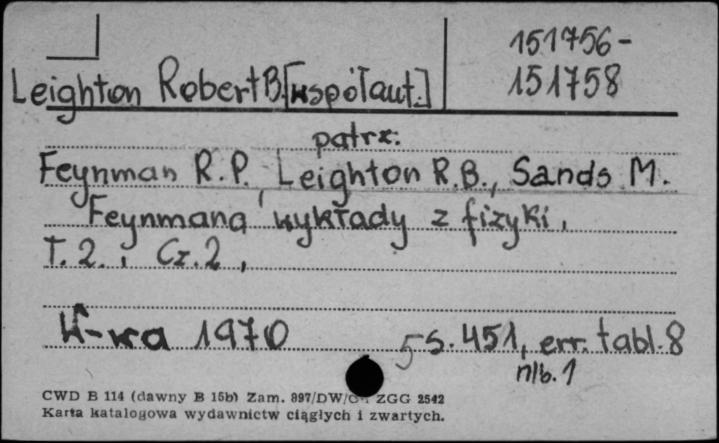 151756-
151758
Leighton Robert B. [współaut.]
patrz:
Feynman R.P., Leighton R.B., Sands M.
Feynmana wykłady z fizyki.
T. 2. , Cz. 2 ,
W-wa 1970 s. 451, err. tabl. 8
nlb. 1
CWD B 114 (dawny B 15b) Zam. 897/DW/ ZGG 2542
Karta katalogowa wydawnictw ciągłych i zwartych.